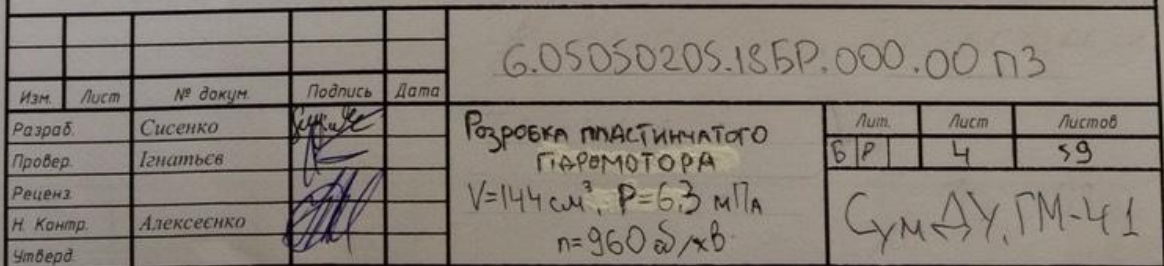 6.05050205.18БР.000.00 ПЗ
Изм. Лист № докум. Подпись Дата
Разраб. Сисенко
Провер. Ігнатьєв
Реценз.
Н. Контр. Алексеєнко
Утверд.
Розробка пластинчатого
гідромотора
V=144 см³, P=6,3 мПа
n=960 об/хв
Лит. Лист Листов
БР 4 59
СумДУ, ГМ-41